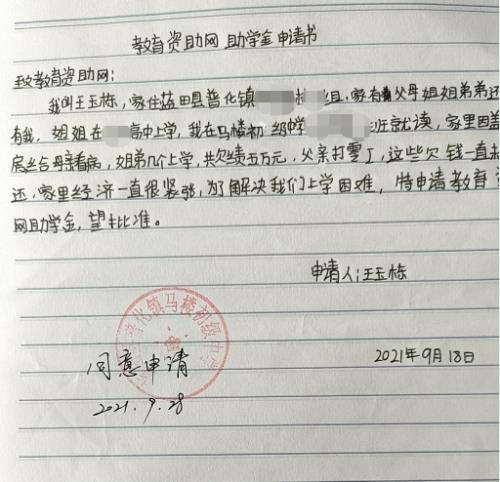 教育资助网 助学金 申请书
致教育资助网:
我叫王玉栋,家住蓝田县普化镇 组,家有父母姐姐弟弟还
有我,姐姐在 高中上学,我在马楼初级中学 班就读,家里因盖
房,给母亲看病,姐弟几个上学,共欠债五万元,父亲打零工,这些欠钱一直未
还,家里经济一直很紧张,为了解决我们上学困难,特申请教育
网助学金,望批准。
申请人:王玉栋
普化镇马楼初级中学
2021年9月18日
同意申请
2021.9.28